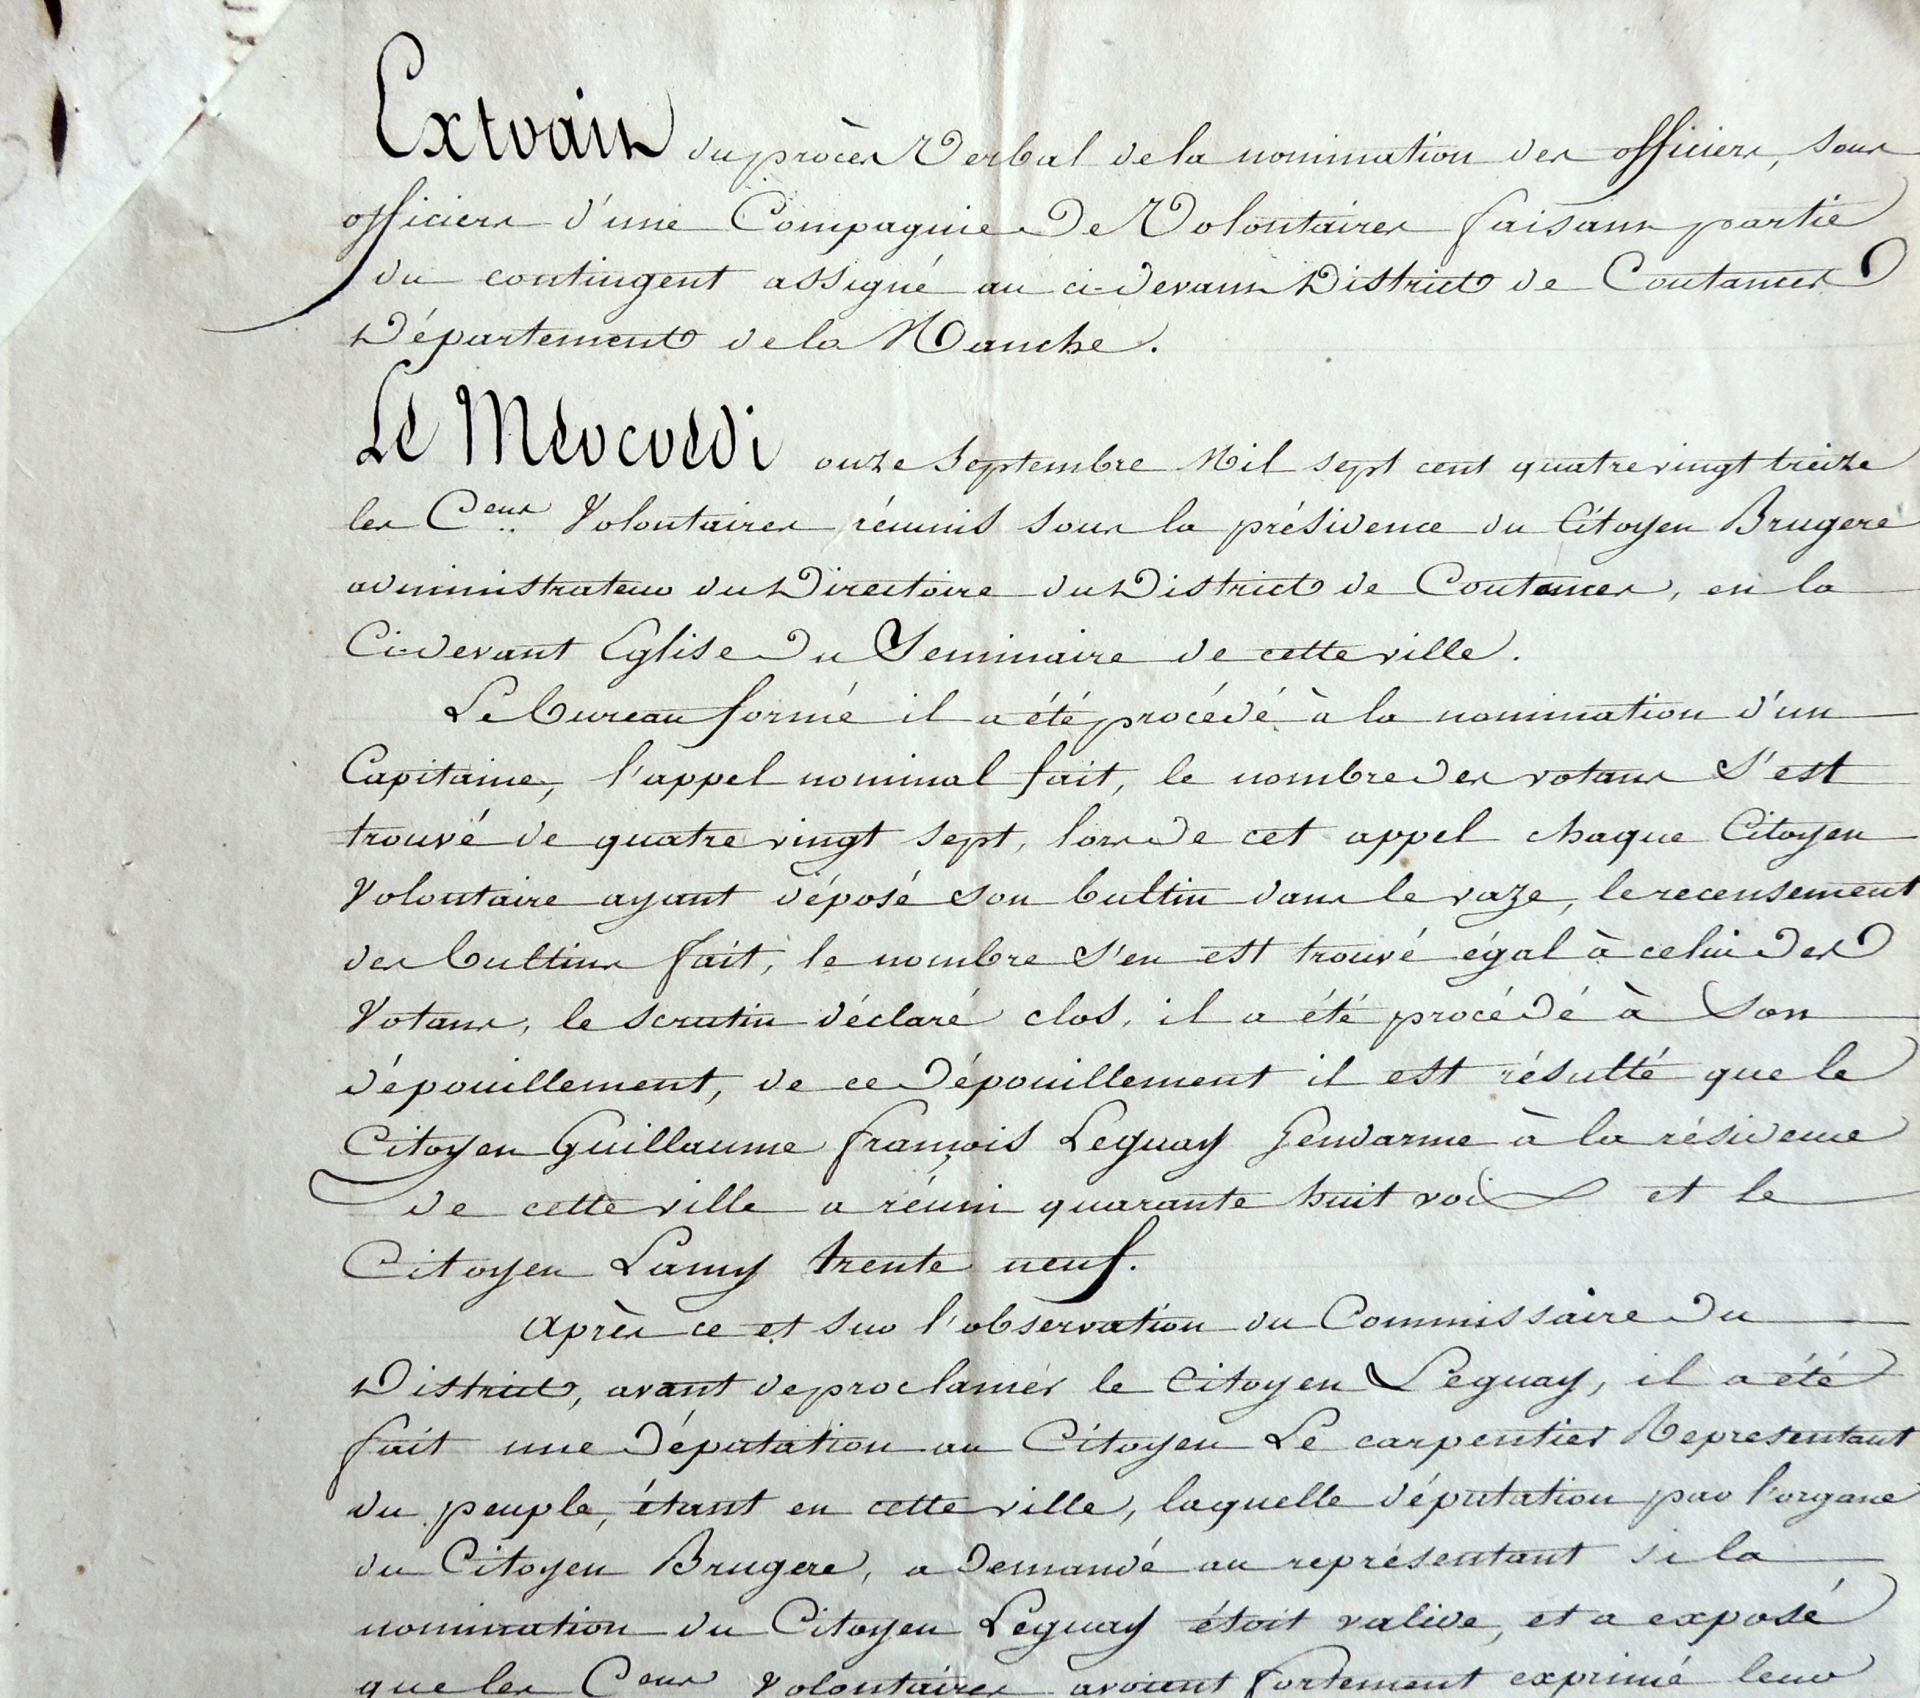 Extrait du procès Verbal de la nomination des officiers, sous
officiers d'une Compagnie De Volontaires faisant partie
du contingent assigné au ci-devant District de Coutances
Département de la Manche.
Le Mercredi onze Septembre Mil sept cent quatre vingt treize
les Cens Volontaires réunis sous la présidence du Citoyen Brugere
administrateur du Directoire du District de Coutances, en la
Ci-devant Eglise Du Seminaire de cette ville.
Le bureau formé il a été procédé à la nomination d'un
Capitaine, l'appel nominal fait, le nombre des votans s'est
trouvé de quatre vingt sept, lors de cet appel chaque Citoyen
Volontaire ayant déposé son bultin dans le vaze, le recensement
des bultins fait, le nombre s'en est trouvé égal à celui Des
Votans, le scrutin déclaré clos, il a été procédé à son
dépouillement, de ce Dépouillement il est résulté que le
Citoyen Guillaume françois Leguay Gendarme à la résidence
de cette ville a réuni quarante huit voix et le
Citoyen Lamy trente neuf.
Après ce et sur l'observation du Commissaire Du
District, avant de proclamer le Citoyen Leguay, il a été
fait une Députation au Citoyen Le carpentier Representant
du peuple, étant en cette ville, laquelle députation par l'organe
du Citoyen Brugere, a Demandé au représentant si la
nomination du Citoyen Leguay étoit valide, et a exposé
que les Cens Volontaires avoient fortement exprimé leur